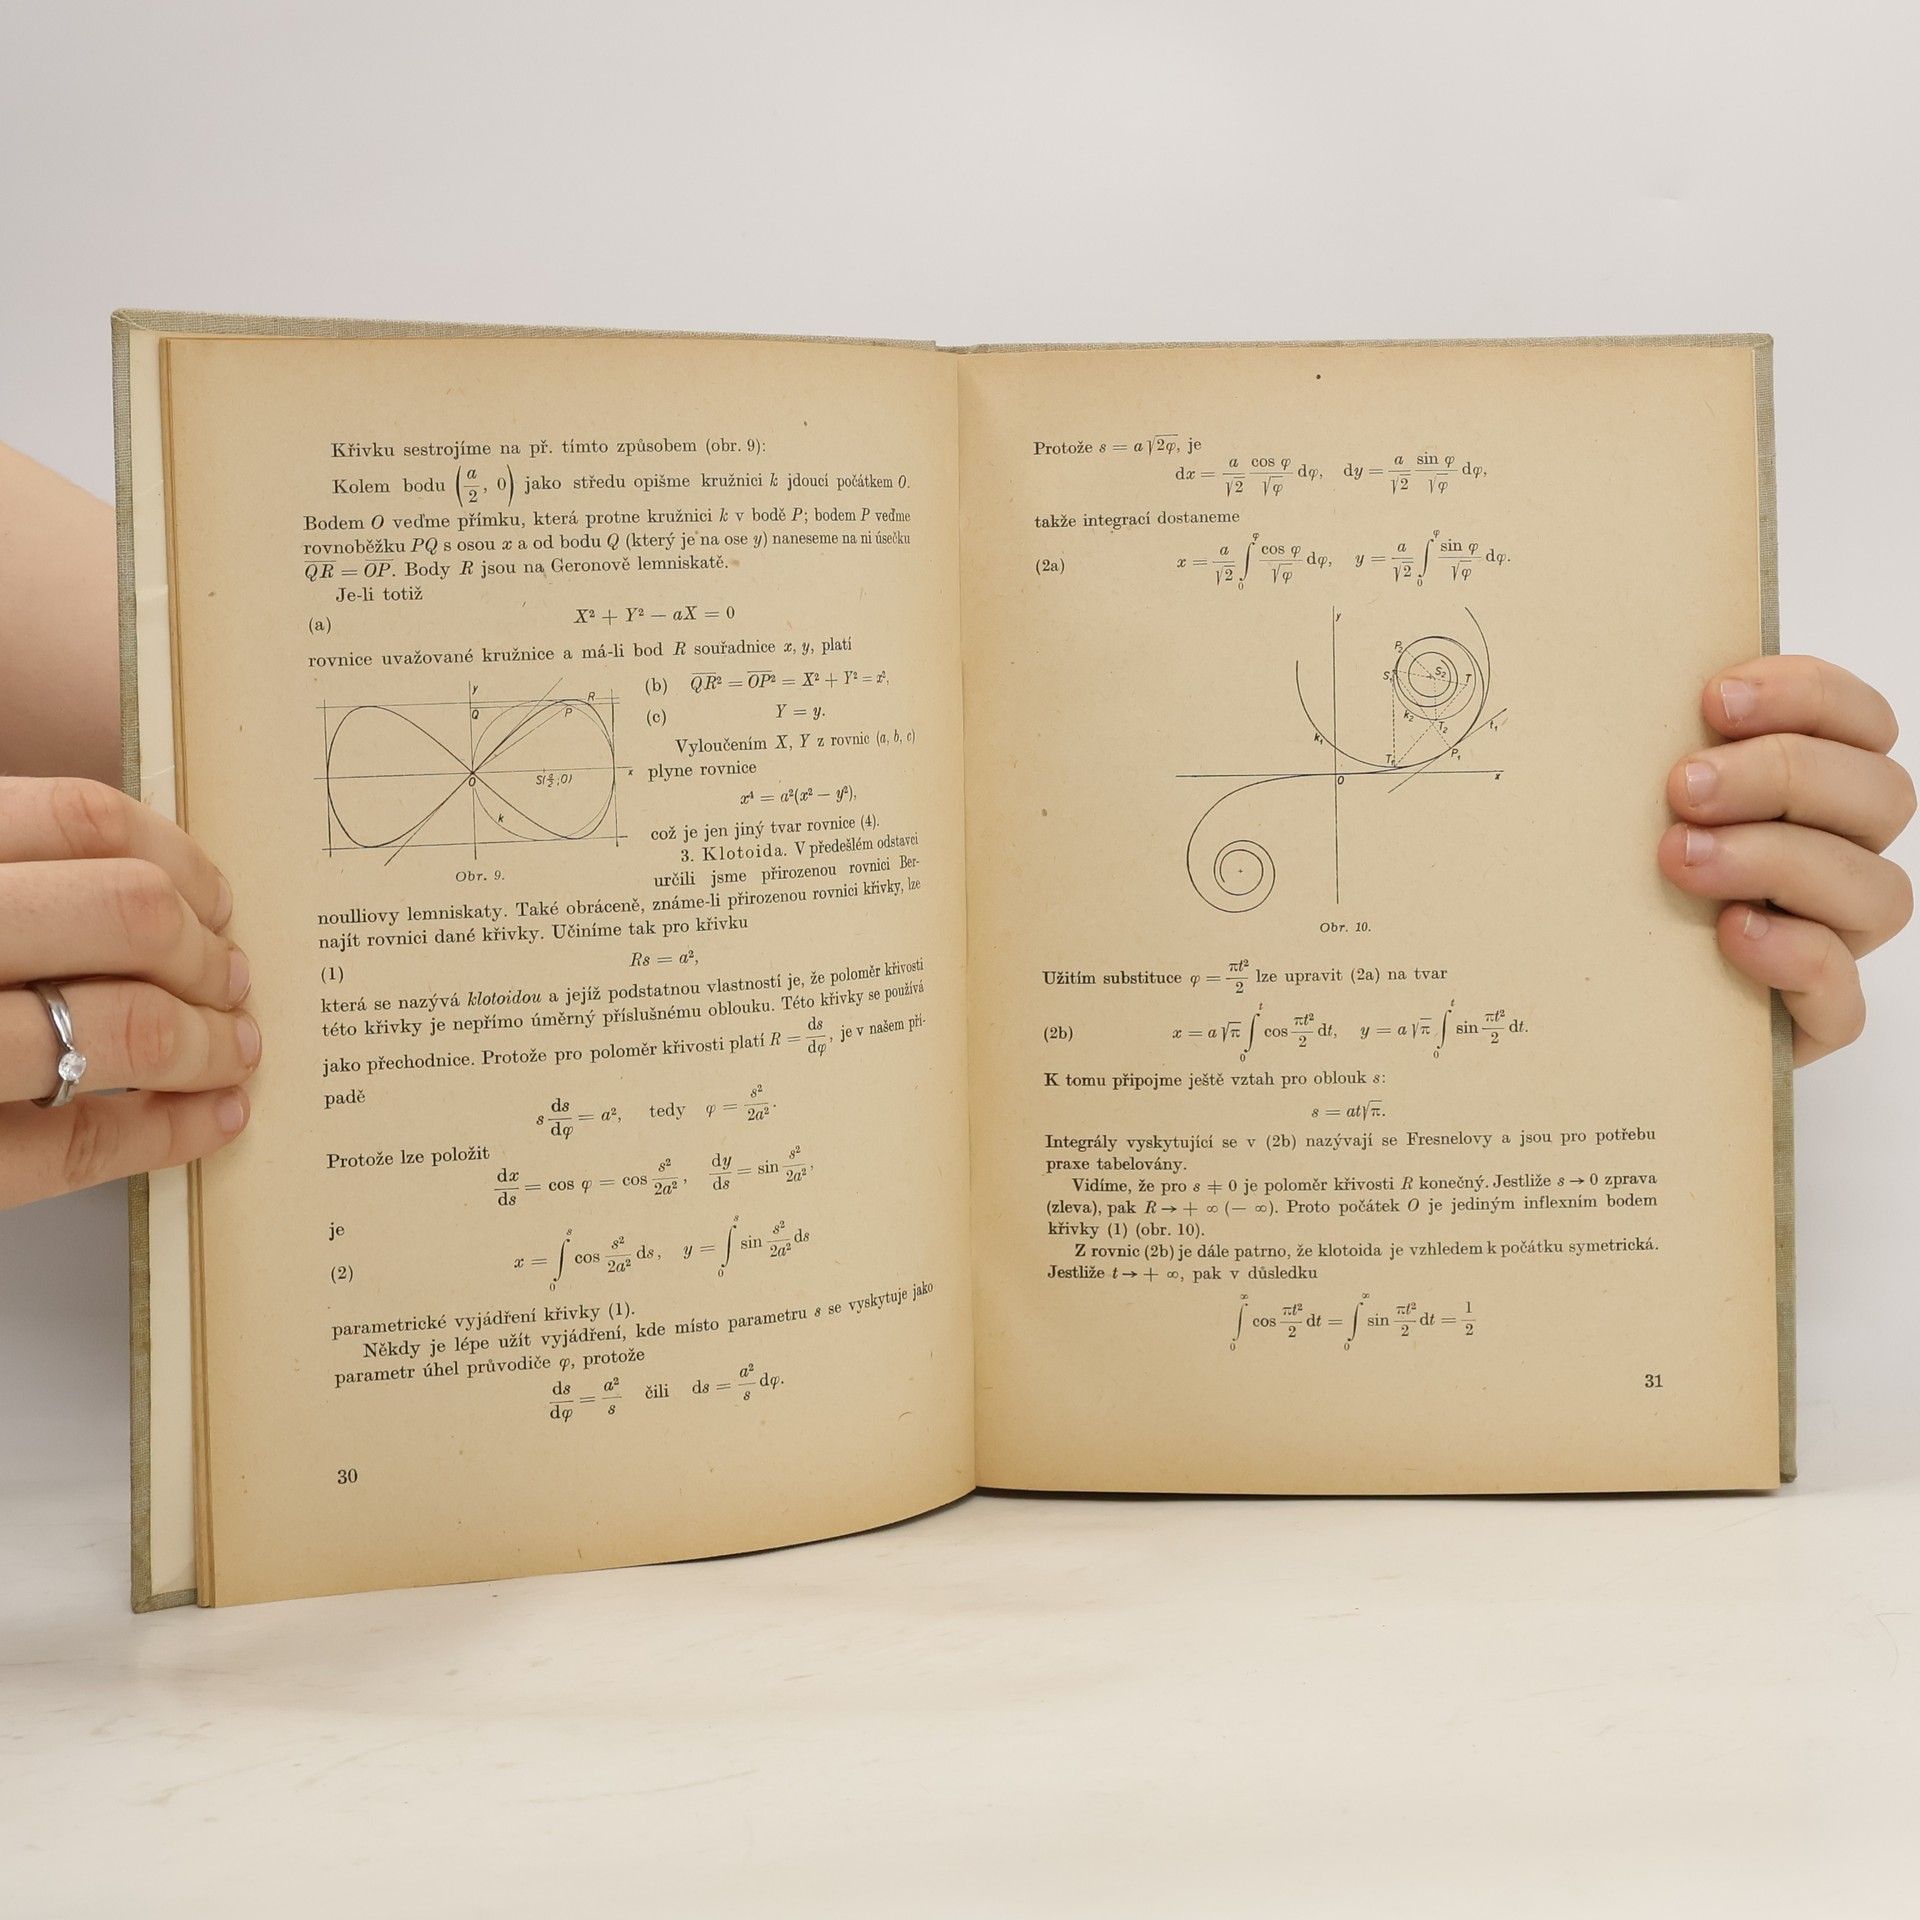 Křivku sestrojíme na př. tímto způsobem (obr. 9):
Kolem bodu (a/2, 0) jako středu opišme kružnici k jdoucí počátkem O.
Bodem O veďme přímku, která protne kružnici k v bodě P; bodem P veďme
rovnoběžku PQ s osou x a od bodu Q (který je na ose y) naneseme na ni úsečku
Q̅R̅ = O̅P̅. Body R jsou na Geronově lemniskatě.
Je-li totiž
(a) X² + Y² — aX = 0
rovnice uvažované kružnice a má-li bod R souřadnice x, y, platí
y
R
Q
P
O
S(a/2;0)
x
k
Obr. 9.
(b) Q̅R̅² = O̅P̅² = X² + Y² = x²,
(c) Y = y.
Vyloučením X, Y z rovnic (a, b, c)
plyne rovnice
x⁴ = a²(x² — y²),
což je jen jiný tvar rovnice (4).
3. Klotoida. V předešlém odstavci
určili jsme přirozenou rovnici Ber-
noulliovy lemniskaty. Také obráceně, známe-li přirozenou rovnici křivky, lze
najít rovnici dané křivky. Učiníme tak pro křivku
(1) Rs = a²,
která se nazývá klotoidou a jejíž podstatnou vlastností je, že poloměr křivosti
této křivky je nepřímo úměrný příslušnému oblouku. Této křivky se používá
jako přechodnice. Protože pro poloměr křivosti platí R = ds/dφ, je v našem pří-
padě
s ds/dφ = a², tedy φ = s²/2a².
Protože lze položit
dx/ds = cos φ = cos s²/2a², dy/ds = sin s²/2a²,
je
(2) x = ∫₀ˢ cos s²/2a² ds, y = ∫₀ˢ sin s²/2a² ds
parametrické vyjádření křivky (1).
Někdy je lépe užít vyjádření, kde místo parametru s se vyskytuje jako
parametr úhel průvodiče φ, protože
ds/dφ = a²/s čili ds = a²/s dφ.
30
Protože s = a√2φ, je
dx = a/√2 cos φ/√φ dφ, dy = a/√2 sin φ/√φ dφ,
takže integrací dostaneme
(2a) x = a/√2 ∫₀^φ cos φ/√φ dφ, y = a/√2 ∫₀^φ sin φ/√φ dφ.
y
P₂
S₁
S₂
T
k₂
T₂
t₁
k₁
P₁
T₁
O
x
Obr. 10.
Užitím substituce φ = πt²/2 lze upravit (2a) na tvar
(2b) x = a√π ∫₀ᵗ cos πt²/2 dt, y = a√π ∫₀ᵗ sin πt²/2 dt.
K tomu připojme ještě vztah pro oblouk s:
s = at√π.
Integrály vyskytující se v (2b) nazývají se Fresnelovy a jsou pro potřebu
praxe tabelovány.
Vidíme, že pro s ≠ 0 je poloměr křivosti R konečný. Jestliže s → 0 zprava
(zleva), pak R → + ∞ (— ∞). Proto počátek O je jediným inflexním bodem
křivky (1) (obr. 10).
Z rovnic (2b) je dále patrno, že klotoida je vzhledem k počátku symetrická.
Jestliže t → + ∞, pak v důsledku
∫₀^∞ cos πt²/2 dt = ∫₀^∞ sin πt²/2 dt = 1/2
31